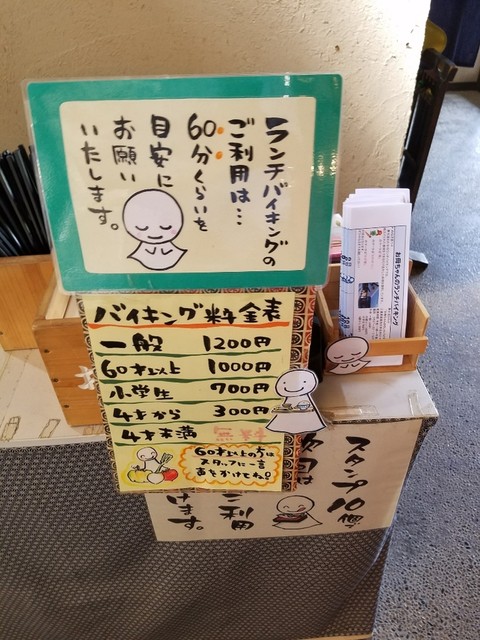 ランチバイキングの
ご利用は…
60分くらいを
目安に
お願い
いたします。
バイキング料金表
一般 1200円
60才以上 1000円
小学生 700円
4才から 300円
4才未満 無料
60才以上の方は
スタッフに一言
お母ちゃんのランチバイキング
スタンプ10個で
次回は
ご利用
けます。